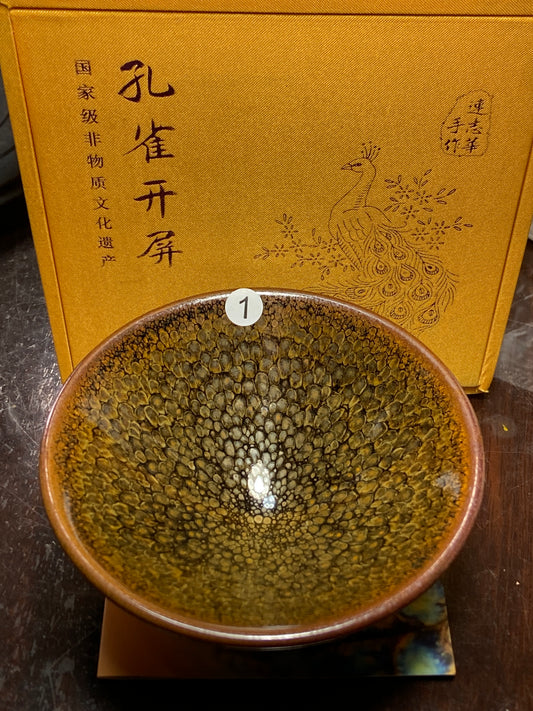 孔雀开屏
国家级非物质文化遗产
連志華
手作
1